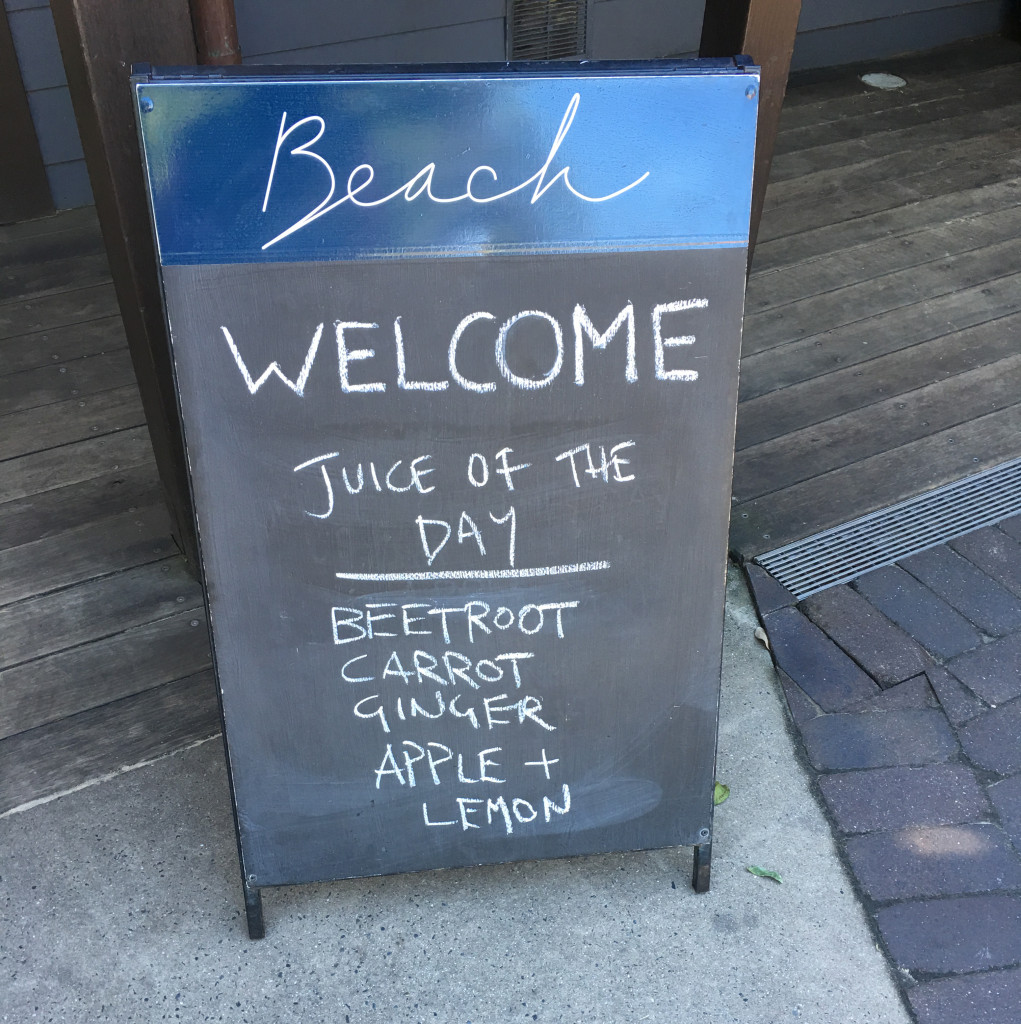 Beach
WELCOME
JUICE OF THE
DAY
BEETROOT
CARROT
GINGER
APPLE +
LEMON